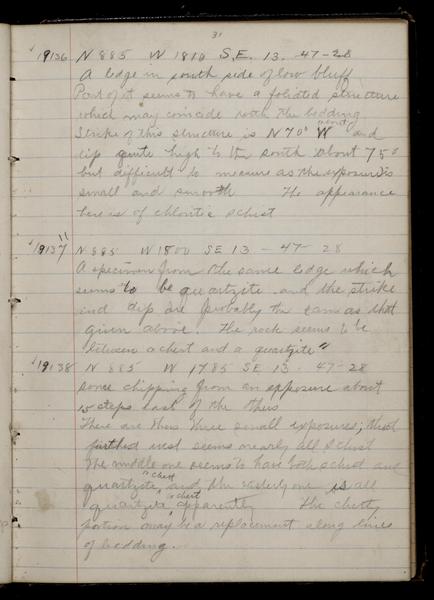 31
19136 N 885 W 1810 S.E. 13. 47-28
A ledge in south side of low bluff
Part of it seems to have a foliated structure
which may coincide with the bedding
Strike of this structure is N 70° W about and
dip quite high to the south about 75°
but difficult to measure as the exposure is
small and smooth The appearance
here is of chlorite schist
19137 N 885 W 1800 SE 13 - 47 - 28
A specimen from the same ledge which
seems to be quartzite and the strike
and dip are probably the same as that
given above. The rock seems to be
between a chert and a quartzite"
19138 N 885 W 1785 SE 13. 47-28
some chipping from an exposure about
15 steps east of the others
There are thus three small exposures; that
farthest west seems nearly all schist
The middle one seems to have both schist and
quartzite, chert and the easterly one is all
quartzite, chert apparently The cherty
portion may be a replacement along lines
of bedding.